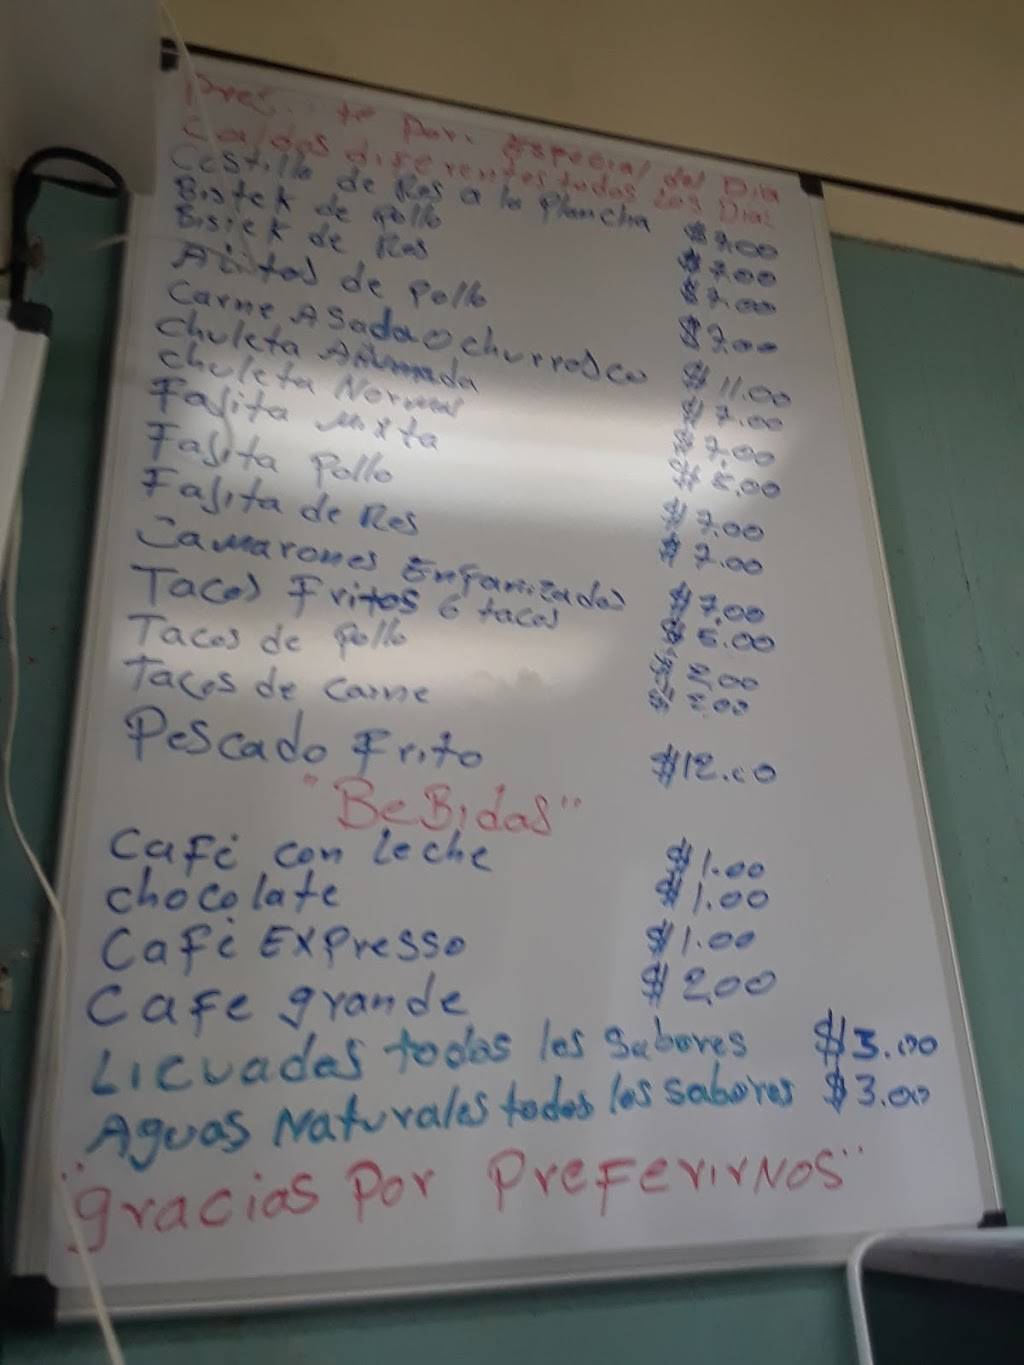 te Por. Especial del Dia
Caldos diferentes todos Los Dias
Costilla de Res a la Plancha $7.00
Bistek de pollo $7.00
Bistek de Res $7.00
Alitas de pollo $7.00
Carne Asada o churrasco $11.00
Chuleta Ahumada $7.00
Chuleta Normal $7.00
Fajita Mixta $8.00
Fajita Pollo $7.00
Fajita de Res $7.00
Camarones Enpanizados $7.00
Tacos Fritos 6 tacos $5.00
Tacos de pollo $2.00
Tacos de carne $2.00
Pescado Frito $12.00
"BeBidas"
Café con leche $1.00
chocolate $1.00
Café EXPresso $1.00
Cafe grande $2.00
Licuados todos los Sabores $3.00
Aguas Naturales todos los sabores $3.00
"gracias Por PreFerirNOS"